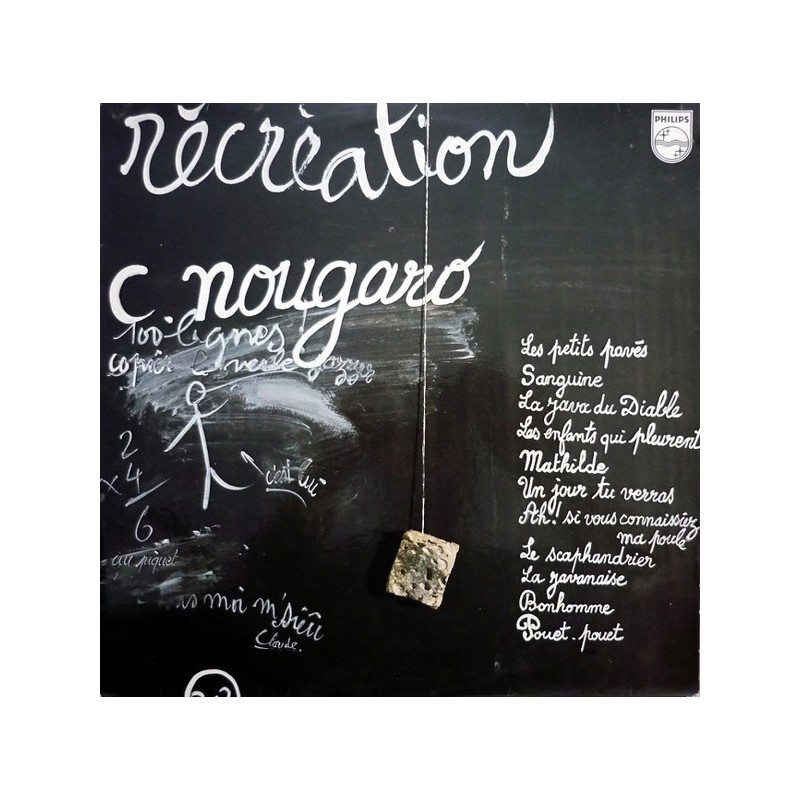 récréation
PHILIPS
c nougaro
100 lignes!
copier le verbe
2
x 4
6
au piquet
c'est lui
as moi m'siêû
Claude.
Les petits pavés
Sanguine
La java du Diable
Les enfants qui pleurent
Mathilde
Un jour tu verras
Ah! si vous connaissiez
ma poule
Le scaphandrier
La javanaise
Bonhomme
Pouet-pouet